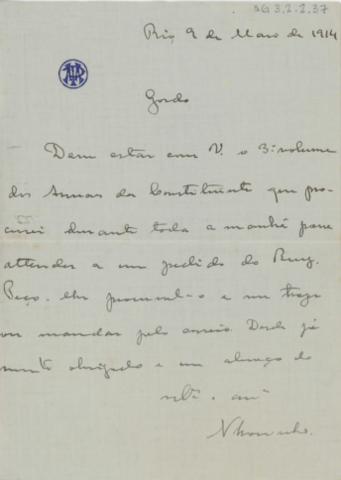 AG 3.2.2.37
Rio, 9 de Maio de 1914
Gordo
Deve estar com V. o 3º volume
dos Annaes da Constituinte que pro-
curei durante toda a manhã para
attender a um pedido do Ruy.
Peço-lhe procural-o e me traga
ou mandar pelo correio. Desde já
muito obrigado e um abraço do